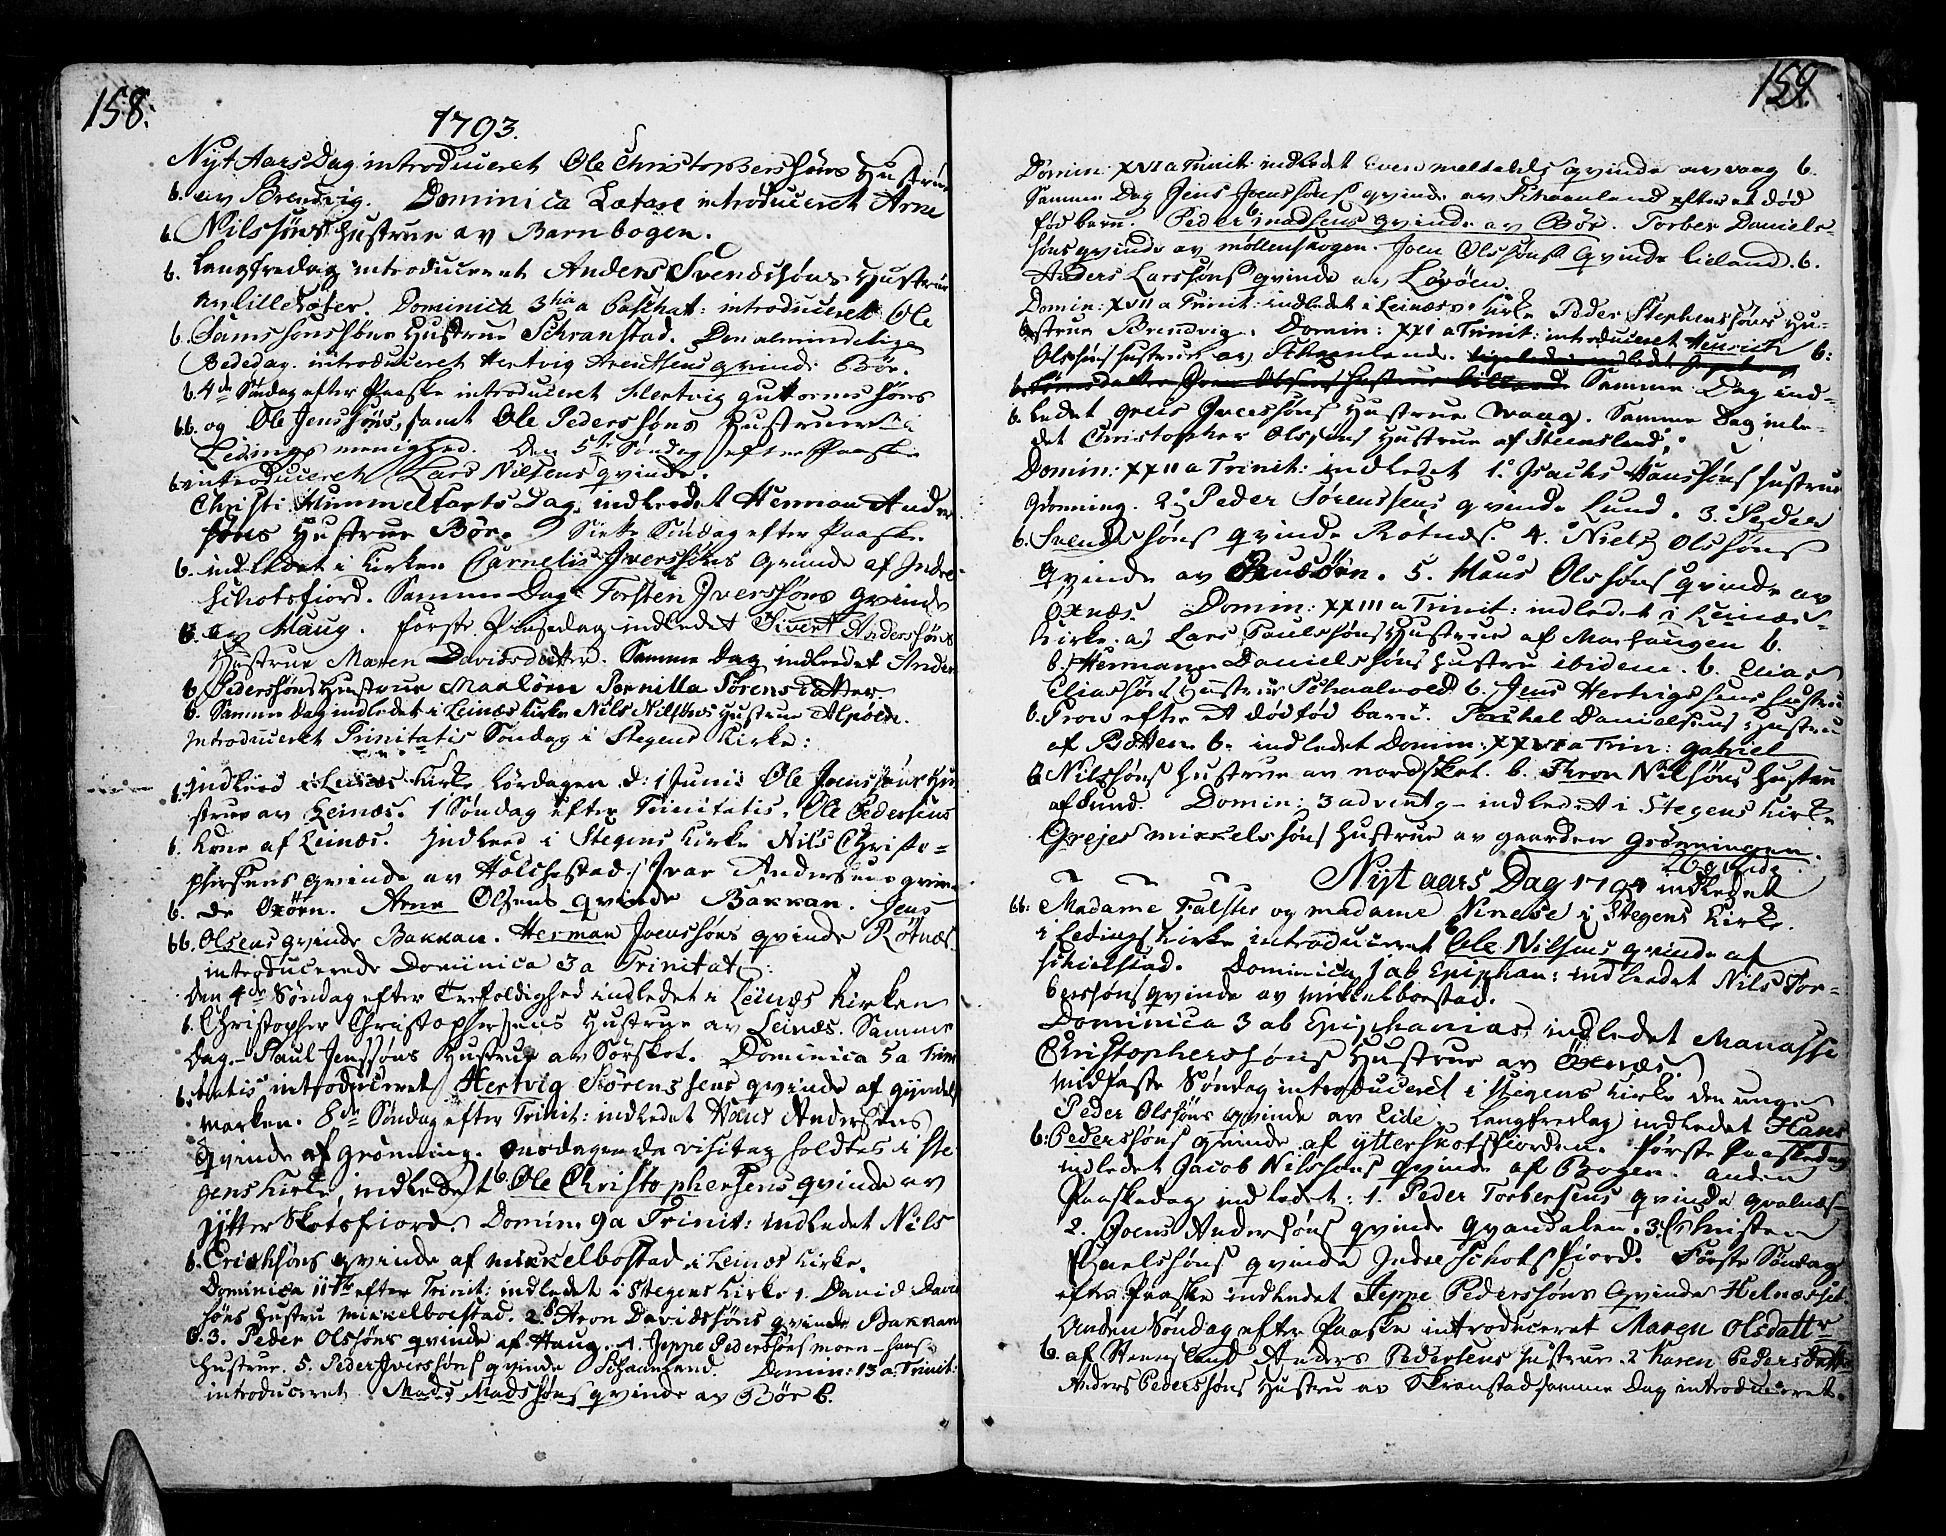 158.
1793.
Nyt Aars Dag introduceret Ole Christophersøns Hustrue
6. av Brendvig. Dominica Lætare introduceret Arne
6. Nilssøns Hustrue av Barnbogen.
6. Langfredag introduceret Anders Svendsøns Hustrue
av Lille Dominica 3tia a Paschat: introduceret Ole
6. Samssonsøns Hustrue Schranstad. Den almindelige
Bededag introduceret Hertvig Arentsens qvinde Bör.
6. 4de Søndag efter Paaske introduceret Hertvig guttormssøns
66. og Ole Jenssøns, samt Ole Pederssøns Hustruer i
Ledings menighed. Den 5te Søndag efter Paaske
6. introduceret Lars Nilsens qvinde.
Christi Himmelfarts Dag indledet Herman Ander
søns Hustrue Bör. Siette Søndag efter Paaske
6. indledet i Kirken Carnelis Iverssøns qvinde af Indre
Schotsfiord. Samme Dag Torsten Iverssøns qvinde
6. av Haug. første Pinsedag indledet Sivert Anderssøns
Hustrue Maren Davidsdatter. Samme dag indledet Anders
6. Pederssøns Hustrue Maalöen Pernilla Sörensdatter.
6. Samme dag indledet i Leinæs Kirke Nils Nilssøns Hustrue Alpöen.
Introduceret Trinitatis Søndag i Stegens Kirke:
6. Indleed i Leinæs Kirke Lördagen d: 1 Junii Ole Joenssøns Hu
strue av Leinæs. 1 Søndag efter Trinitatis. Ole Pedersens
6. Kone af Leinæs. Indleed i Stegens Kirke Nils Christo=
phersens qvinde av Holchestad. Ivar Andersens qvin
6. de Oxöen. Arne Olsens qvinde Bakkan. Jens
66. Olsens qvinde Bakkan. Herman Joenssøns qvinde Rötnæs.
introducerede Dominica 3 a Trinitat:
Den 4de Søndag efter Trefoldighed indledet i Leinæs Kirken
6. Christopher Christophersens Hustrue av Leinæs. Samme
Dag Paul Jenssøns Hustrue av Sörskot. Dominica 5 a Trini
6. tatis introduceret Hertvig Sörenssens qvinde af
marken. 8de Søndag efter Trinit: indledet Hans Andersens
qvinde af Grönning. onsdagen da visitas holdtes i Ste
gens Kirke, indledet 6 Ole Christophersens qvinde av
ytter Skotsfiord. Domin. 9 a Trinit: indledet Nils
6. Erichsøns qvinde af mikkelbostad i Leines Kirke.
Dominica 11te efter Trinit: indledet i Stegens Kirke 1. David David
søns Hustru mikkelboestad. 2. Aron Davidssøns qvinde Bakkan
6. 3. Peder Olssøns qvinde af Haug. 4. Jeppe Pederssøns
Hustrue. 5. Peder Iverssøns qvinde Domin: 13 a Trinit:
introduceret Mads Madssøns qvinde av Bör 6.
159.
Domin: XVI a Trinit: indledet Even qvinde av vaag 6.
Samme Dag Jens Joenssøns qvinde av efter et död
föd barn. Peder madsens qvinde av Bör. Torber Daniels-
søns qvinde av möllenskogen. Joen Olssøns qvinde Lieland. 6.
Anders Larssøns qvinde av Lövöen.
Domin: XVII a Trinit: indledet i Leinæs Kirke Peder Stephenssøns Hu-
strue Brendvig. Domin: XXI a Trinit: introduceret Henrich
Olssøns Hustrue av
Samme Dag ind-
6. ledet Greis Iverssøns Hustrue vaag. Samme Dag inle-
det Christopher Olssøns Hustrue af Steensland.
Domin: XXII a Trinit: indledet 1. Isachs Hanssøns Hustrue
Grönning. 2. Peder Sörenssens qvinde Lund. 3. Peder
6. Svendssøns qvinde Rötnæs. 4. Niels Olssøns
qvinde av 5. Hans Olssøns qvinde av
Oxnæs. Domin: XXIII a Trinit: indledet i Leinæs-
Kirke a) Lars Paulssøns Hustrue af 6.
b. Hermann Danielssøns Hustru ibidem. 6. Elias
Eliassøns Hustrue Schaalvold 6. Jens Hertvigsens Hustru
6. efter et dödföd barn. Danielsens Hustru
af Botten 6. indledet Domin: XXVI a Trin: Gabriel
6. Nilssøns Hustrue av nordskot. 6. Aron Nilssøns Hustrue
af Lund. Domin: 3 advent indledet i Stegens Kirke
Grejes mikkelssøns Hustrue av gaarden Grönningen.
Nyt aars Dag 1794 indledet
66. Madame Falster og madame i Stegens Kirke.
i Ledings Kirke introduceret Ole Nilsens qvinde af
Schielstad. Dominica 1 ab Epiphan: indledet Nils Tor-
berssøns qvinde av mikkelboestad.
Dominica 3 ab Epiphanias indledet Manasse
Christopherssøns Hustrue av Oxnæs.
Midfaste Søndag introduceret i Stegens Kirke den unge
Peder Olssøns qvinde av Eide. Langfredag indledet Hans
6. Pederssøns qvinde af ytterskotsfiorden. Første Paaskedag
indledet Jacob Nilssøns qvinde af Bogen. Anden
Paaskedag indledet: 1. Peder Torbersens qvinde qvalnæs-
2. Joens Anderssøns qvinde qvandalen. 3. Christen
qvinde Indre Schotsfiord. Første Søndag
efter Paaske indledet Jeppe Pederssøns qvinde
Anden Søndag efter Paaske introduceret Maren Olsdatter
6. af Steensland Anders Pedersens Hustrue. 2 Karen Pedersdatt
Anders Pederssøns Hustru av Skranstad samme Dag introduceret.